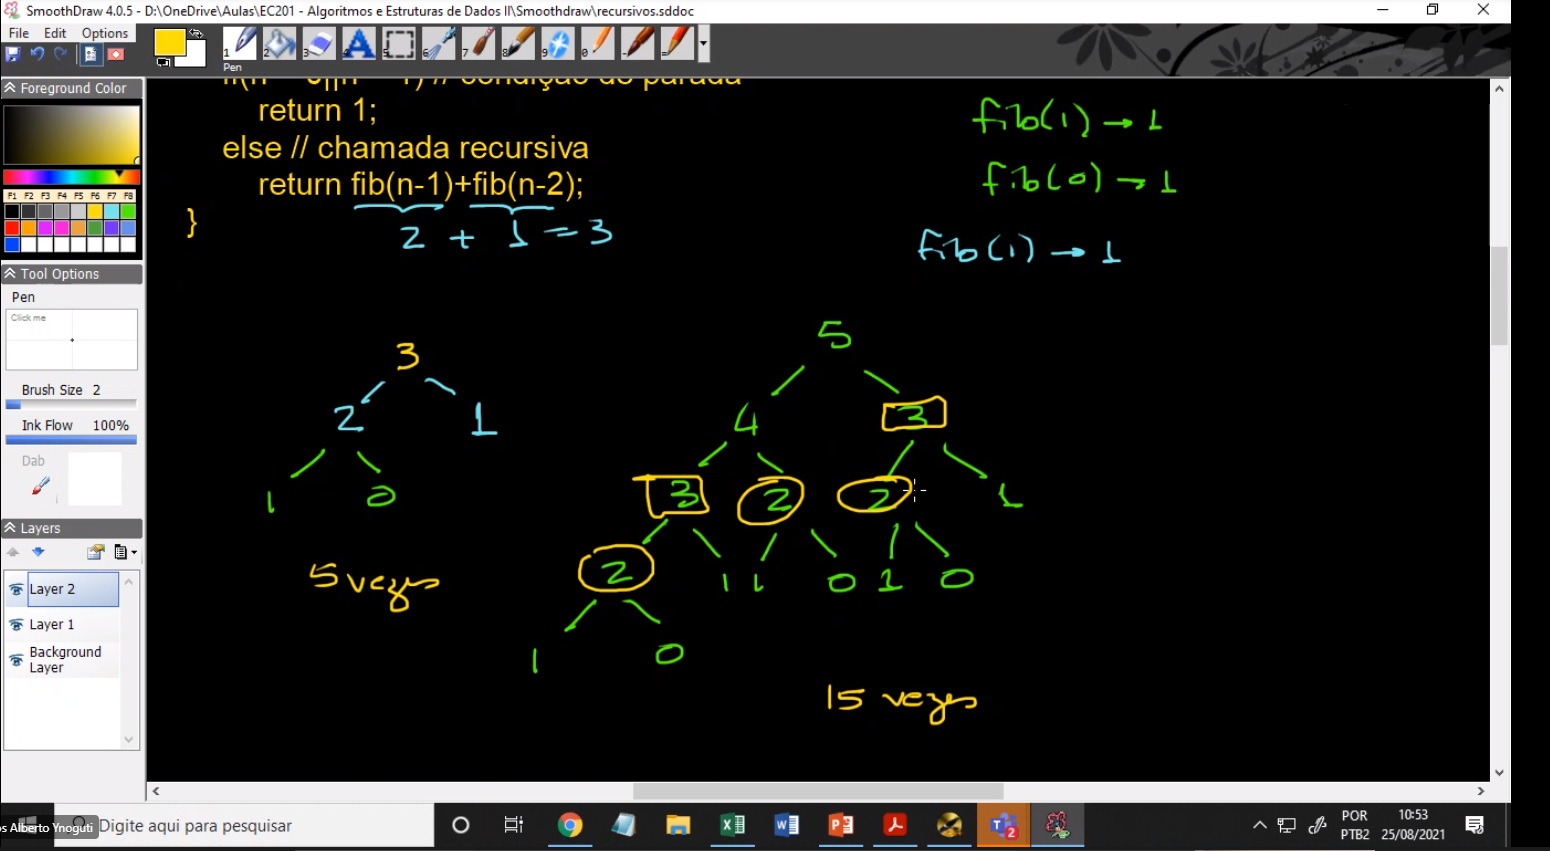 SmoothDraw 4.0.5 - D:\OneDrive\Aulas\EC201 - Algoritmos e Estruturas de Dados II\Smoothdraw\recursivos.sddoc
File Edit Options
1 2 3 5 6 7 8 9 0
Pen
Foreground Color
F1 F2 F3 F4 F5 F6 F7 F8
Tool Options
Pen
Click me
Brush Size 2
Ink Flow 100%
Dab
Layers
Layer 2
Layer 1
Background
Layer
// condição de parada
return 1;
else // chamada recursiva
return fib(n-1)+fib(n-2);
}
2 + 1 = 3
fib(1) → 1
fib(0) → 1
fib(1) → 1
3
2 1
1 0
5 vezes
5
4 3
3 2 2 1
2 1 1 0 1 0
1 0
15 vezes
os Alberto Ynoguti
Digite aqui para pesquisar
2
POR
PTB2
10:53
25/08/2021